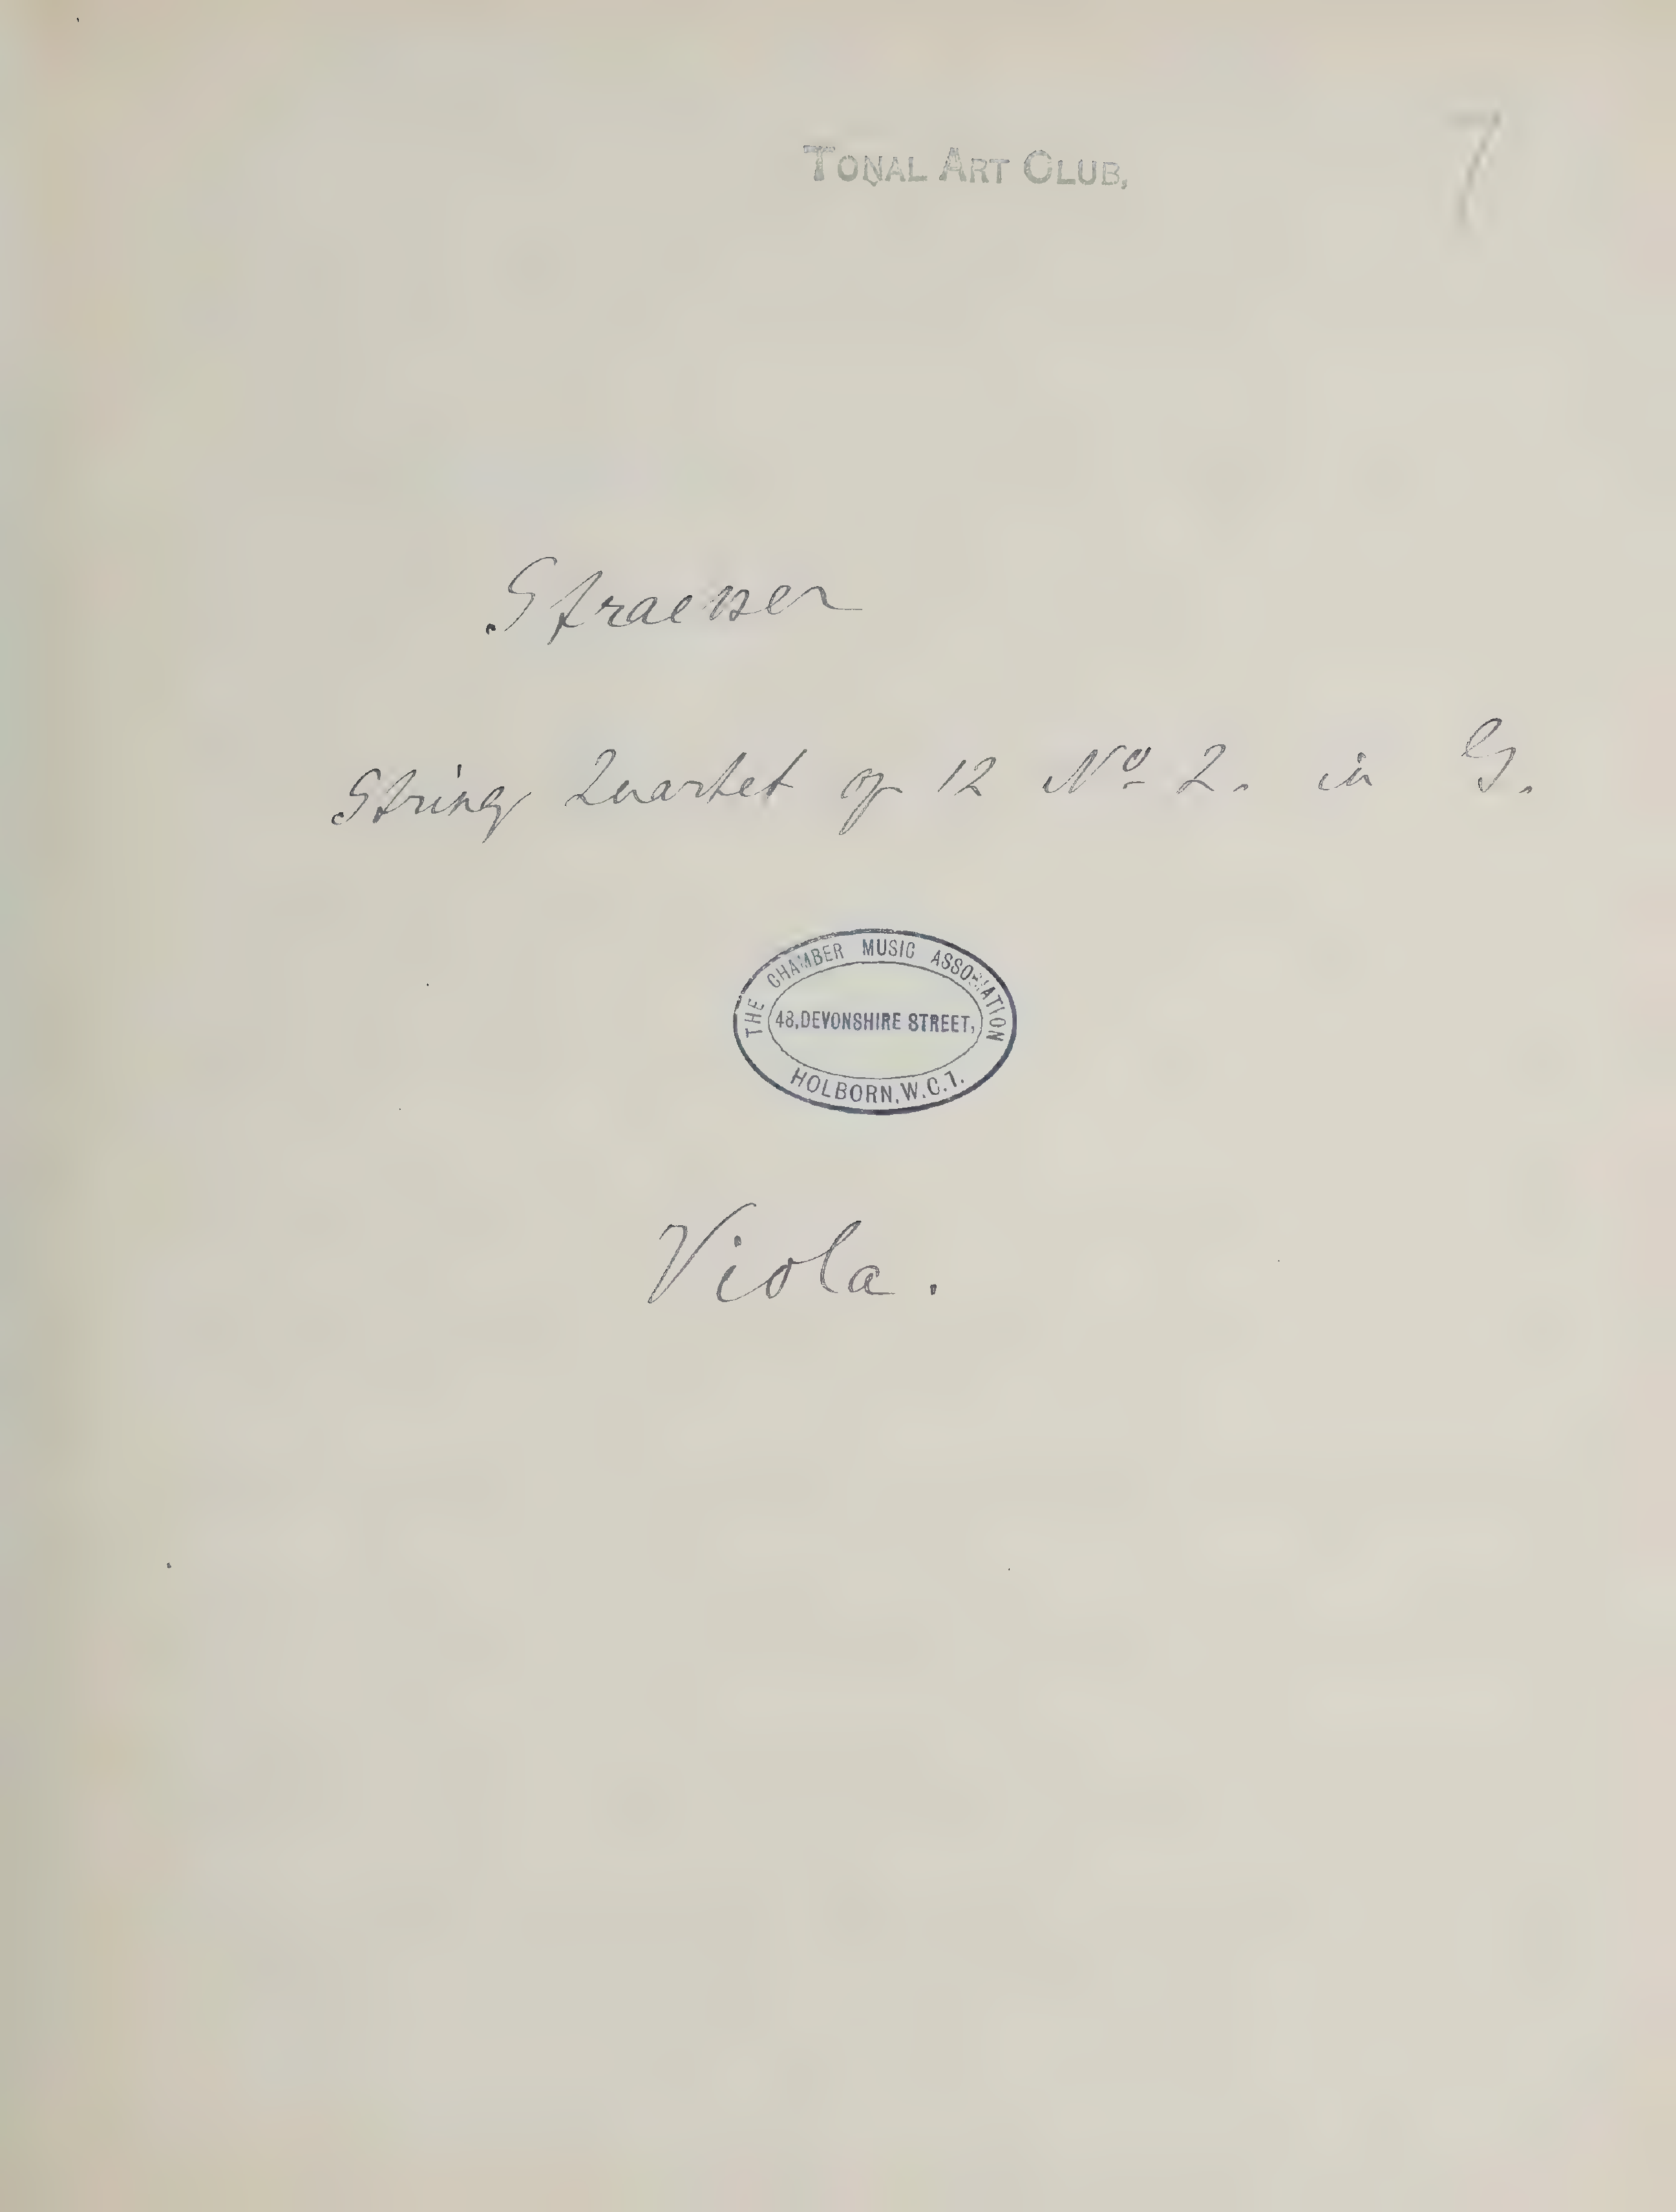 TONAL ART CLUB,
7
Straesser
String Quartet op 12 Nº 2. in G.
THE CHAMBER MUSIC ASSOCIATION
48, DEVONSHIRE STREET,
HOLBORN, W.C.1.
Viola.